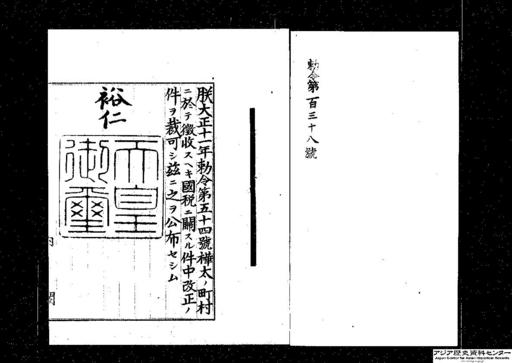 勅令第百三十八號
朕大正十一年勅令第五十四號樺太ノ町村
ニ於テ徴收スヘキ國税ニ關スル件中改正ノ
件ヲ裁可シ茲ニ之ヲ公布セシム
裕仁
天皇御璽
内閣
アジア歴史資料センター
Japan Center for Asian Historical Records